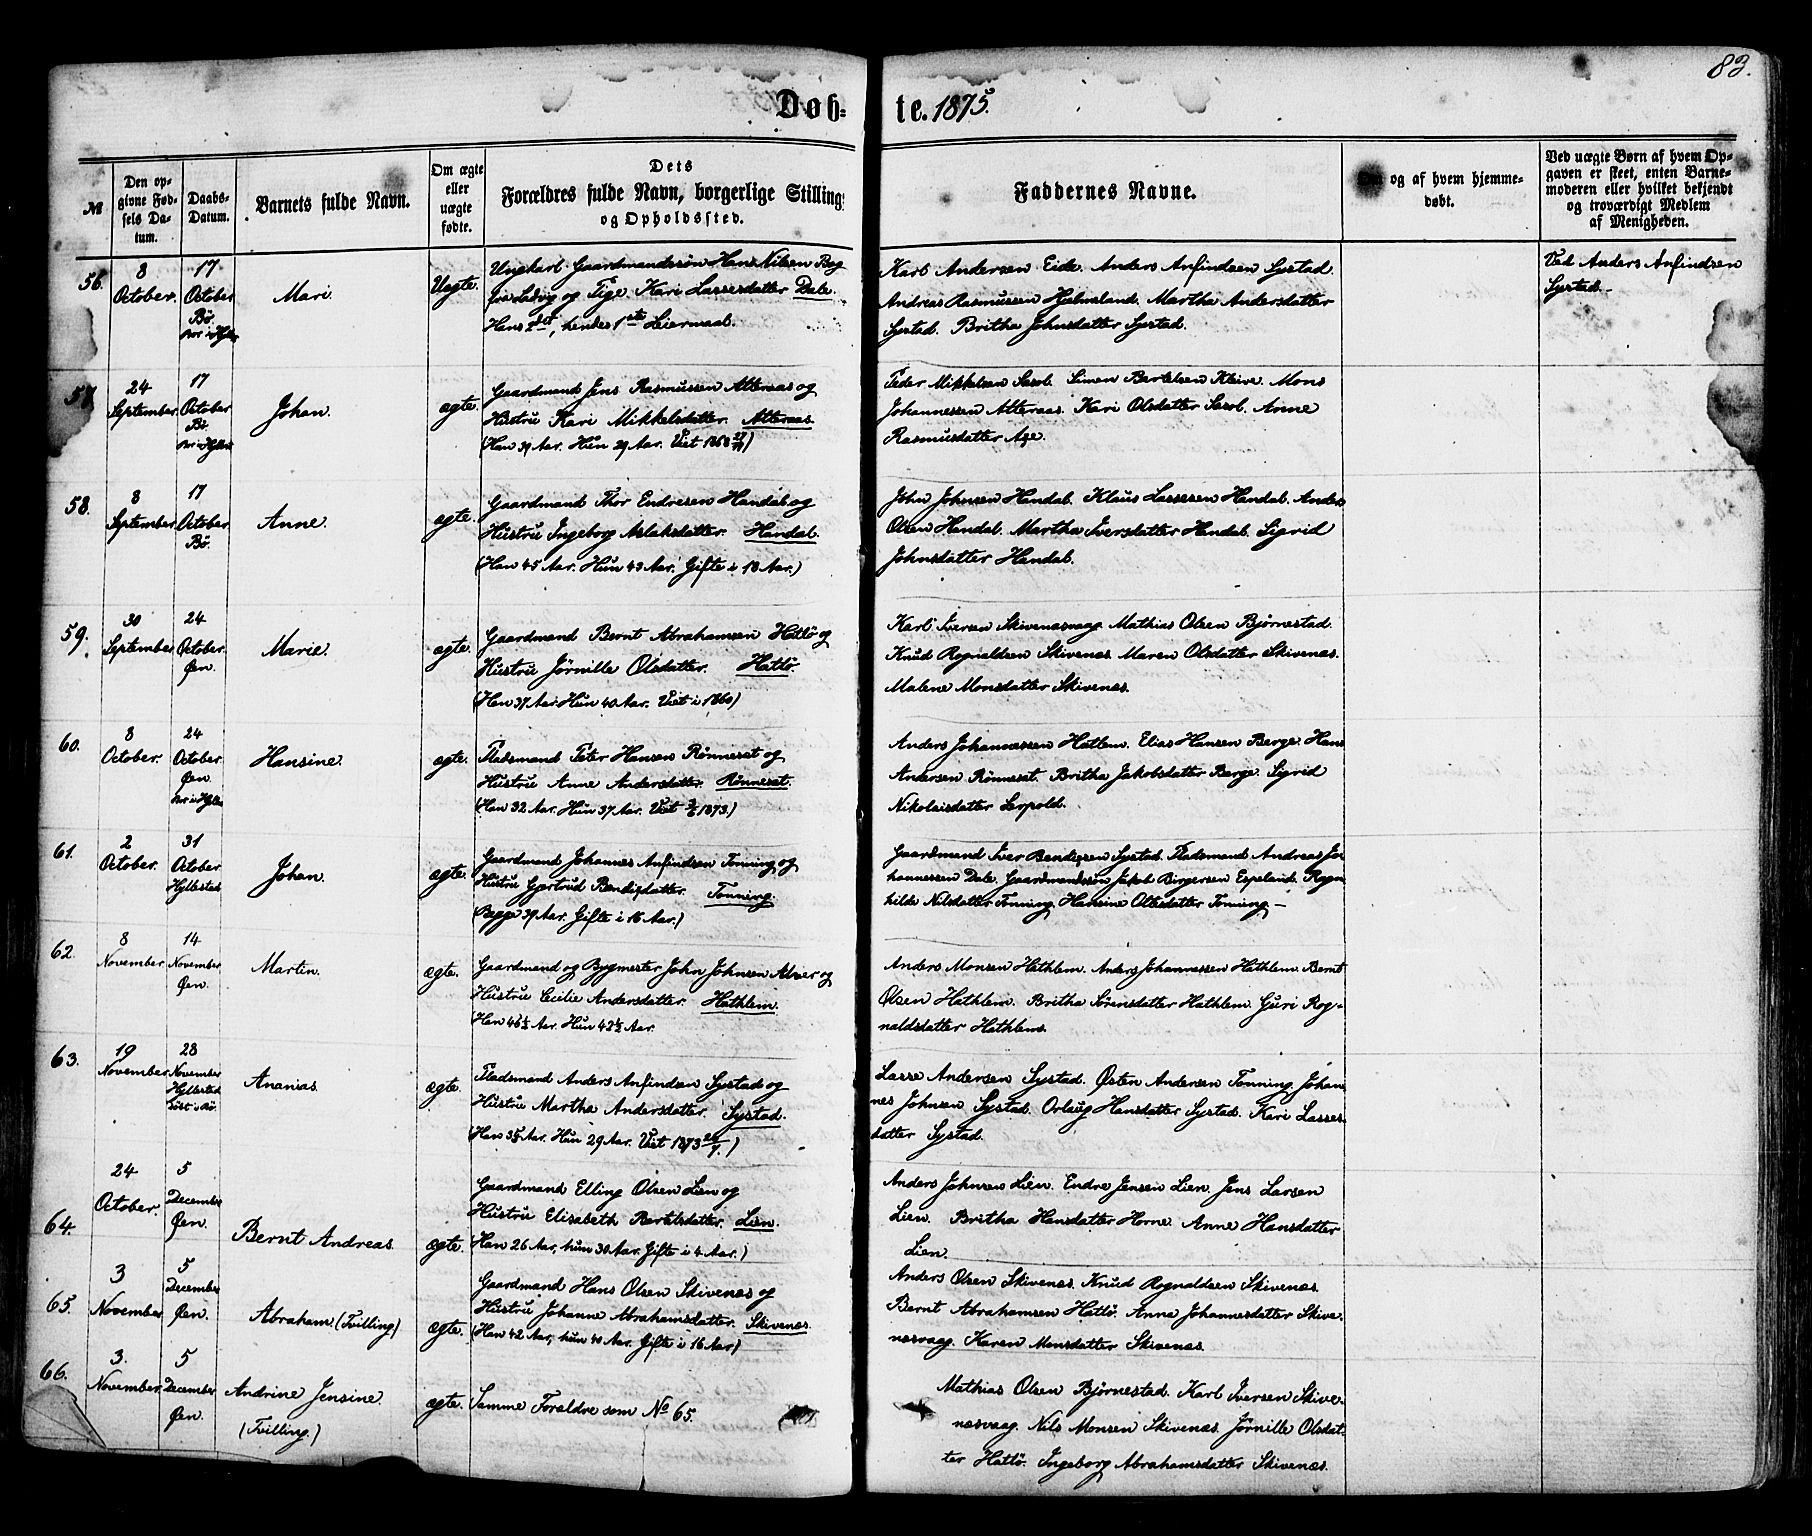 83.
Døb- te. 1875.
№
Den opgivne Fødsels Datum.
Daabs-Datum.
Barnets fulde Navn.
Om ægte eller uægte fødte.
Dets
Forældres fulde Navn, borgerlige Stilling
og Opholdssted.
Faddernes Navne.
og af hvem hjemmedøbt.
Ved uægte Børn af hvem Opgaven er skeet, enten Barnemoderen eller hvilket bekjendt og troværdigt Medlem af Menigheden.
56. 8 October. 17 October Bø Mari. Uægte.
Ungkarl Gaardmandssøn Hans Nilsen Bog
fra Ladvig og Pige Kari Lassesdatter Dale.
Hans 2det, hendes 1ste Leiermaal.
Karl Andersen Eide. Anders Anfindsen Systad.
Andreas Rasmussen Hjelmeland. Martha Andersdatter
Systad. Britha Johnsdatter Systad.
Ved Anders Anfindsen
Systad.
57. 24 September. 17 October Bø. Johan. ægte.
Gaardmand Jens Rasmussen Atteraas og
Hustru Kari Mikkelsdatter. Atteraas.
(Han 39 Aar. Hun 29 Aar. Viet 1868
Peder Mikkelsen Sæsol. Simon Bertelsen Kleive. Mons
Johannessen Atteraas. Kari Olsdatter Sæsol. Anne
Rasmusdatter Aae.
58. 8 September. 17 October Bø. Anne. ægte.
Gaardmand Thor Endresen Handal og
Hustru Ingeborg Aslaksdatter. Handal.
(Han 45 Aar. Hun 43 Aar. Gifte i 18 Aar.)
John Johnsen Handal. Klaus Lassesen Handal. Anders
Olsen Handal. Martha Iversdatter Handal. Sigrid
Johnsdatter Handal.
59. 30 September. 24 October. Øen. Marie. ægte.
Gaardmand Bernt Abrahamsen Hatlø og
Hustru Jørnille Olsdatter. Hatlø.
(Han 37 Aar. Hun 40 Aar. Viet i 1860)
Karl Iversen Skivenæsvaag. Mathias Olsen Bjørnestad.
Knud Rognaldsen Skivenæs. Maren Olsdatter Skivenæs.
Malene Monsdatter Skivenæs.
60. 8 October. 24 October. Øen Hansine. ægte.
Pladsmand Peter Hansen Rønneset og
Hustru Anne Andersdatter. Rønneset.
(Han 32 Aar. Hun 37 Aar. Viet 1873.)
Anders Johannessen Hatlem. Elias Hansen Berge. Hans
Andersen Rønneset. Britha Jakobsdatter Berge. Sigrid
Nikolaisdatter Leopold.
61. 2 October. 31 October Hyllestad Johan. ægte.
Gaardmand Johannes Anfindsen Tonning og
Hustru Gjertrud Bendigsdatter. Tonning.
(Begge 39 Aar. Gifte i 16 Aar.)
Gaardmand Iver Bendigsen Systad. Pladsmand Andreas Jo-
hannessen Dale. Gaardmandssøn Jakob Birgersen Espeland. Rogn-
hilde Nilsdatter Tonning. Hansine Ottesdatter Tonning.
62. 8 November. 14 November Øen. Martin. ægte.
Gaardmand og Bygmester John Johnsen Alver og
Hustru Cecilie Andersdatter. Hathlem.
(Han 46½ Aar. Hun 42½ Aar.
Anders Monsen Hathlem. Anders Johannessen Hathlem. Bernt
Olsen Hathlem. Britha Sørensdatter Hathlem. Guri Rog-
naldsdatter Hathlem.
63. 19 November. 28 November Hyllestad Ananias. ægte.
Pladsmand Anders Anfindsen Systad og
Hustru Martha Andersdatter. Systad.
(Han 35 Aar. Hun 29 Aar. Viet 1873
Lasse Andersen Systad. Østen Andersen Tonning. Johan-
nes Johnsen Systad. Orlaug Hansdatter Systad. Kari Lasses-
datter Systad.
64. 24 October. 5 December Øen. Bernt Andreas. ægte.
Gaardmand Elling Olsen Lien og
Hustru Elisabeth Bertelsdatter. Lien.
(Han 26 Aar, hun 30 Aar. Gifte i 4 Aar.)
Anders Johnsen Lien. Endre Jensen Lien. Jens Larsen
Lien. Britha Hansdatter Horne. Anne Hansdatter
Lien.
65. 3 November. 5 December Øen. Abraham (Tvilling) ægte.
Gaardmand Hans Olsen Skivenæs og
Hustru Johanne Abrahamsdatter. Skivenæs.
(Han 42 Aar, hun 40 Aar. Gifte i 16 Aar)
Anders Olsen Skivenæs. Knud Rognaldsen Skivenæs.
Bernt Abrahamsen Hatlø. Anna Johannesdatter Skive-
næsvaag. Karen Monsdatter Skivenæs.
66. 3. November. 5 December Øen. Andrine Jensine. (Tvilling.) ægte.
Samme Forældre som No 65.
Mathias Olsen Bjørnestad. Karl Iversen Skive-
næsvaag. Nils Monsen Skivenæs. Jørnille Olsdat-
ter Hatlø. Ingeborg Abrahamsdatter Skivenæs.